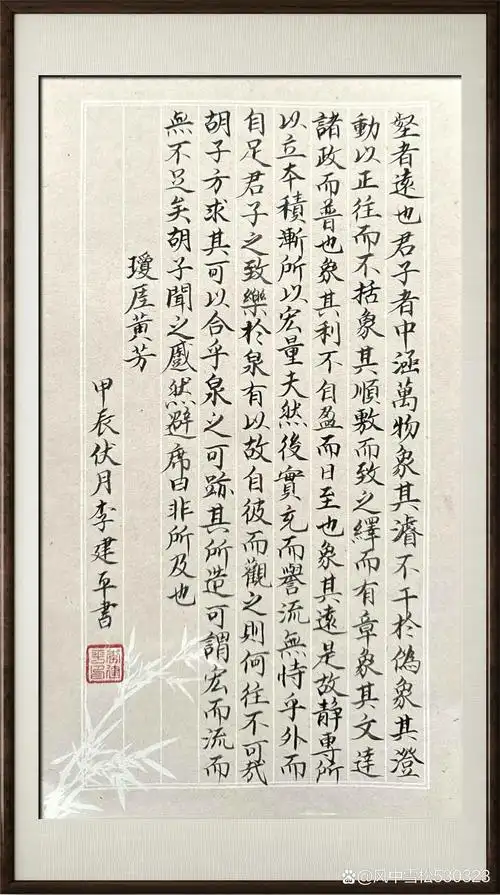 壑者遠也君子者中涵萬物象其濬不干於偽象其澄
動以正往而不括象其順敷而致之繹而有章象其文達
諸政而普也象其利不自盈而日至也象其遠是故靜專所
以立本積漸所以宏量夫然後實充而譽流無恃乎外而
自足君子之致樂於泉有以故自彼而觀之則何往不可哉
胡子方求其可以合乎泉之可跡其所造可謂宏而流而
無不足矣胡子聞之蹙然避席曰非所及也
瓊厓黃芳
甲辰伏月李建平書
@风中雪松530323